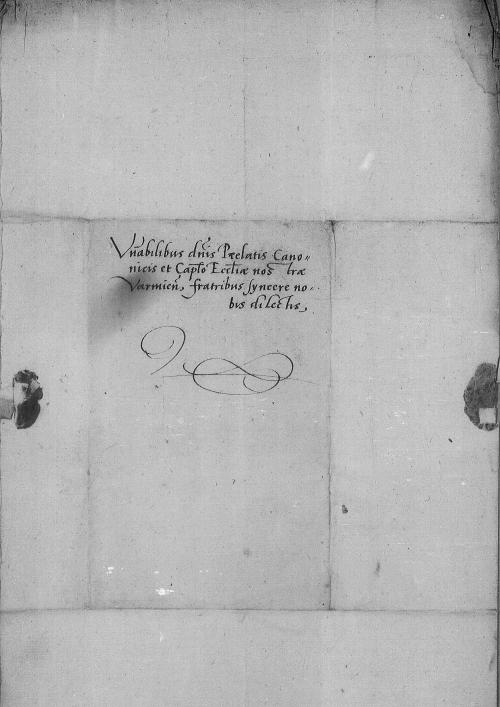 Vn̄abilibus dn̄is Prælatis Cano=
nicis et Capłō Eccłiæ nos træ
Varmien̄, fratribus syncere no=
bis dilectis,